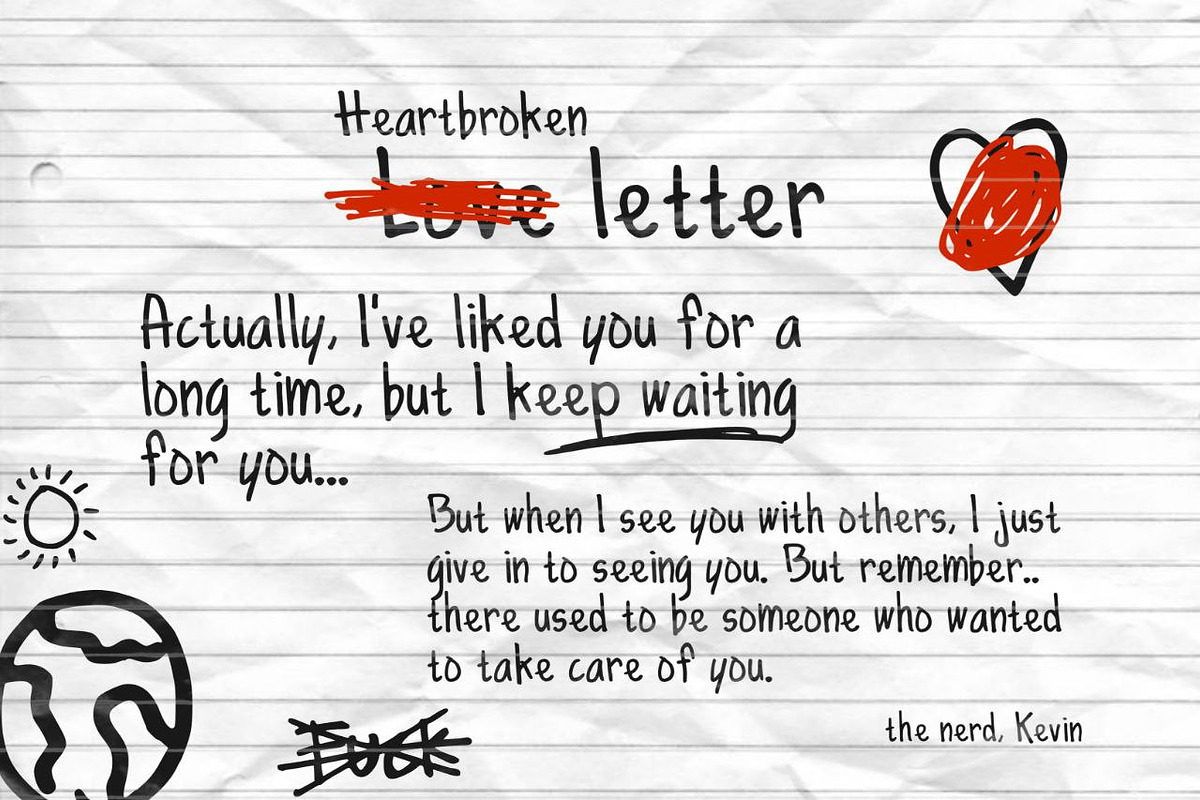 Heartbroken
Love letter
Actually, I've liked you for a
long time, but I keep waiting
for you...
But when I see you with others, I just
give in to seeing you. But remember..
there used to be someone who wanted
to take care of you.
the nerd, Kevin
Fuck